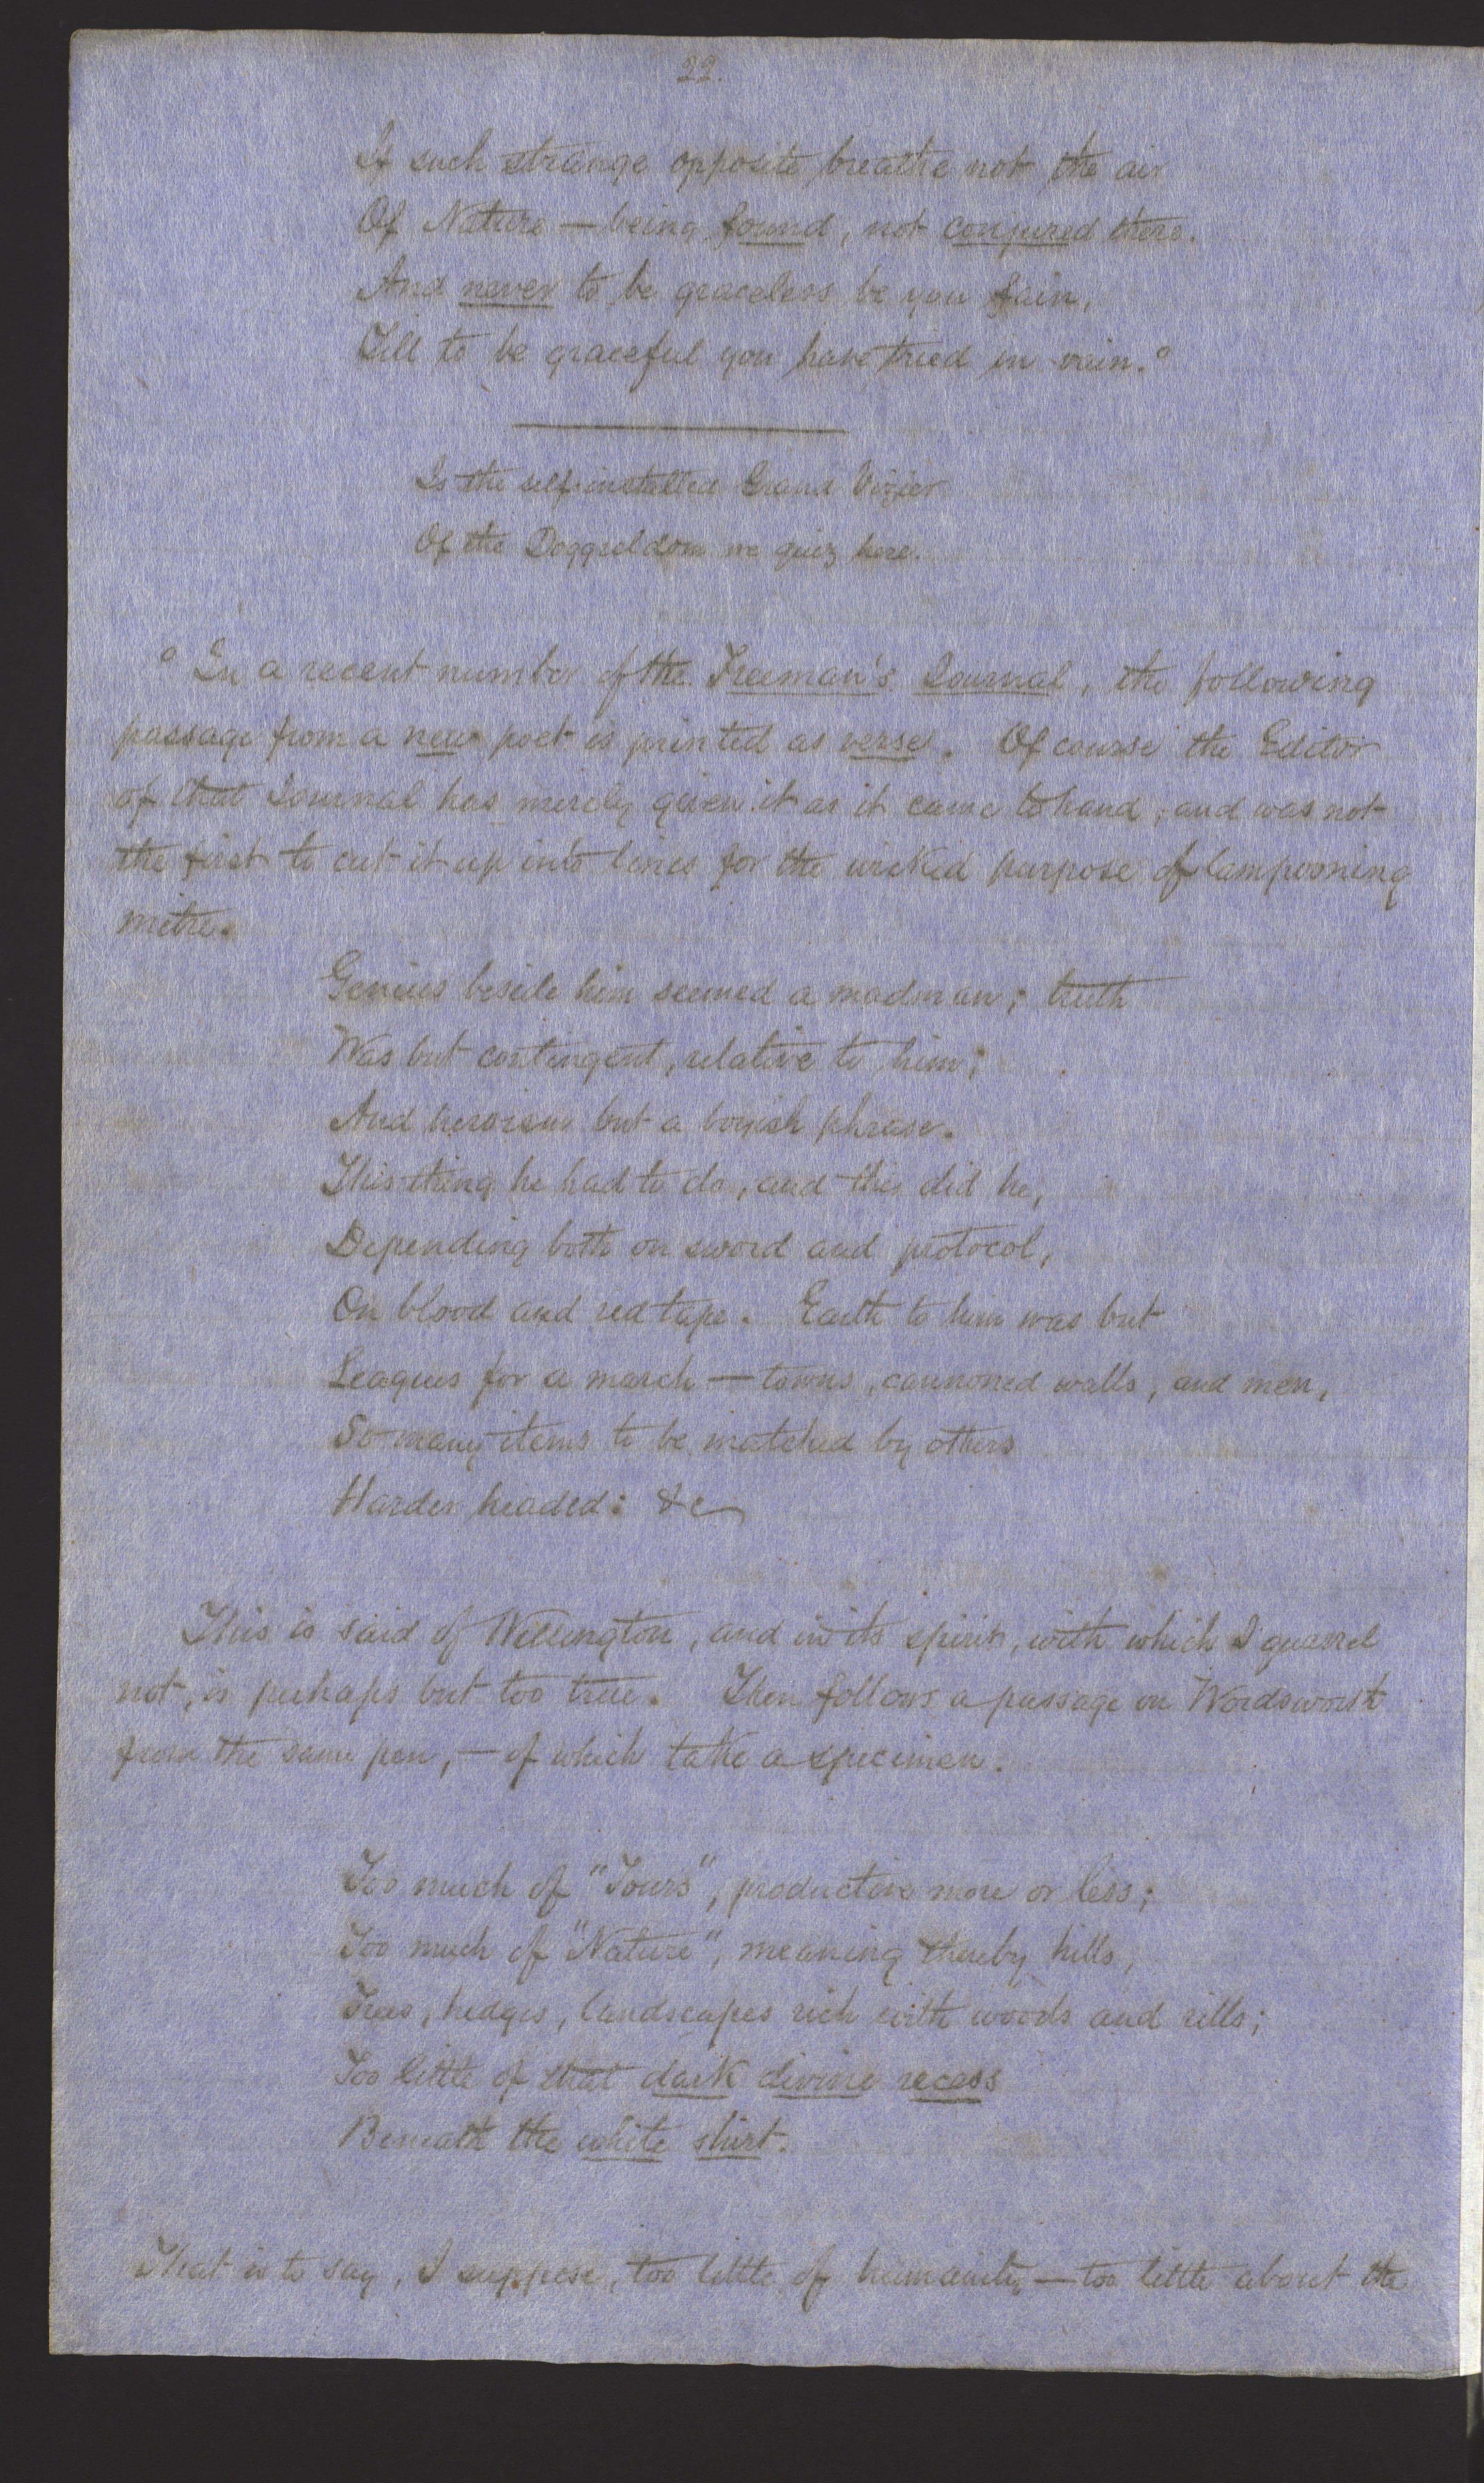 22.
If such strange opposite breathe not the air
Of Nature — being found, not conjured there.
And never to be graceless be you fain,
Till to be graceful you have tried in vain.°
Is the self-installed Grand Vizier
Of the Doggreldom we quiz here.
° In a recent number of the Freeman's Journal, the following
passage from a new poet is printed as verse. Of course the Editor
of that Journal has merely given it as it came to hand; and was not
the first to cut it up into lines for the wicked purpose of lampooning
metre.
Genius beside him seemed a madman; truth
Was but contingent, relative to him;
And heroism but a boyish phrase.
This thing he had to do, and this did he,
Depending both on sword and protocol,
On blood and red tape. Earth to him was but
Leagues for a march — towns, cannoned walls, and men,
So many items to be matched by others
Harder headed: &c
This is said of Wellington, and in its spirit, with which I quarrel
not, is perhaps but too true. Then follows a passage on Wordsworth
from the same pen, — of which take a specimen.
Too much of "Tours", productive more or less;
Too much of "Nature", meaning thereby hills,
Trees, hedges, landscapes rich with woods and rills;
Too little of that dark divine recess
Beneath the white shirt.
That is to say, I suppose, too little of humanity — too little about the